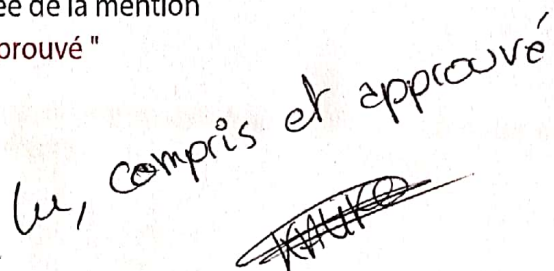 ée de la mention
prouvé "
lu, compris et approuvé